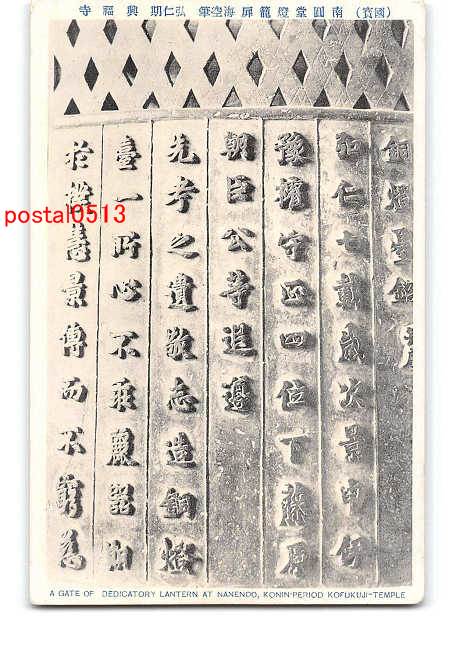 (國寳) 南圓堂燈籠扉海空筆 弘仁期 興福寺
銅燈臺銘 并序
弘仁七載歳次景申伊
豫權守正四位下藤原
朝臣公等追遵
先考之遺敬志造銅燈
臺一所心不乖麗器期
於撲慧景傳而不窮為
postal0513
A GATE OF DEDICATORY LANTERN AT NANENDO, KONIN-PERIOD KOFUKUJI-TEMPLE